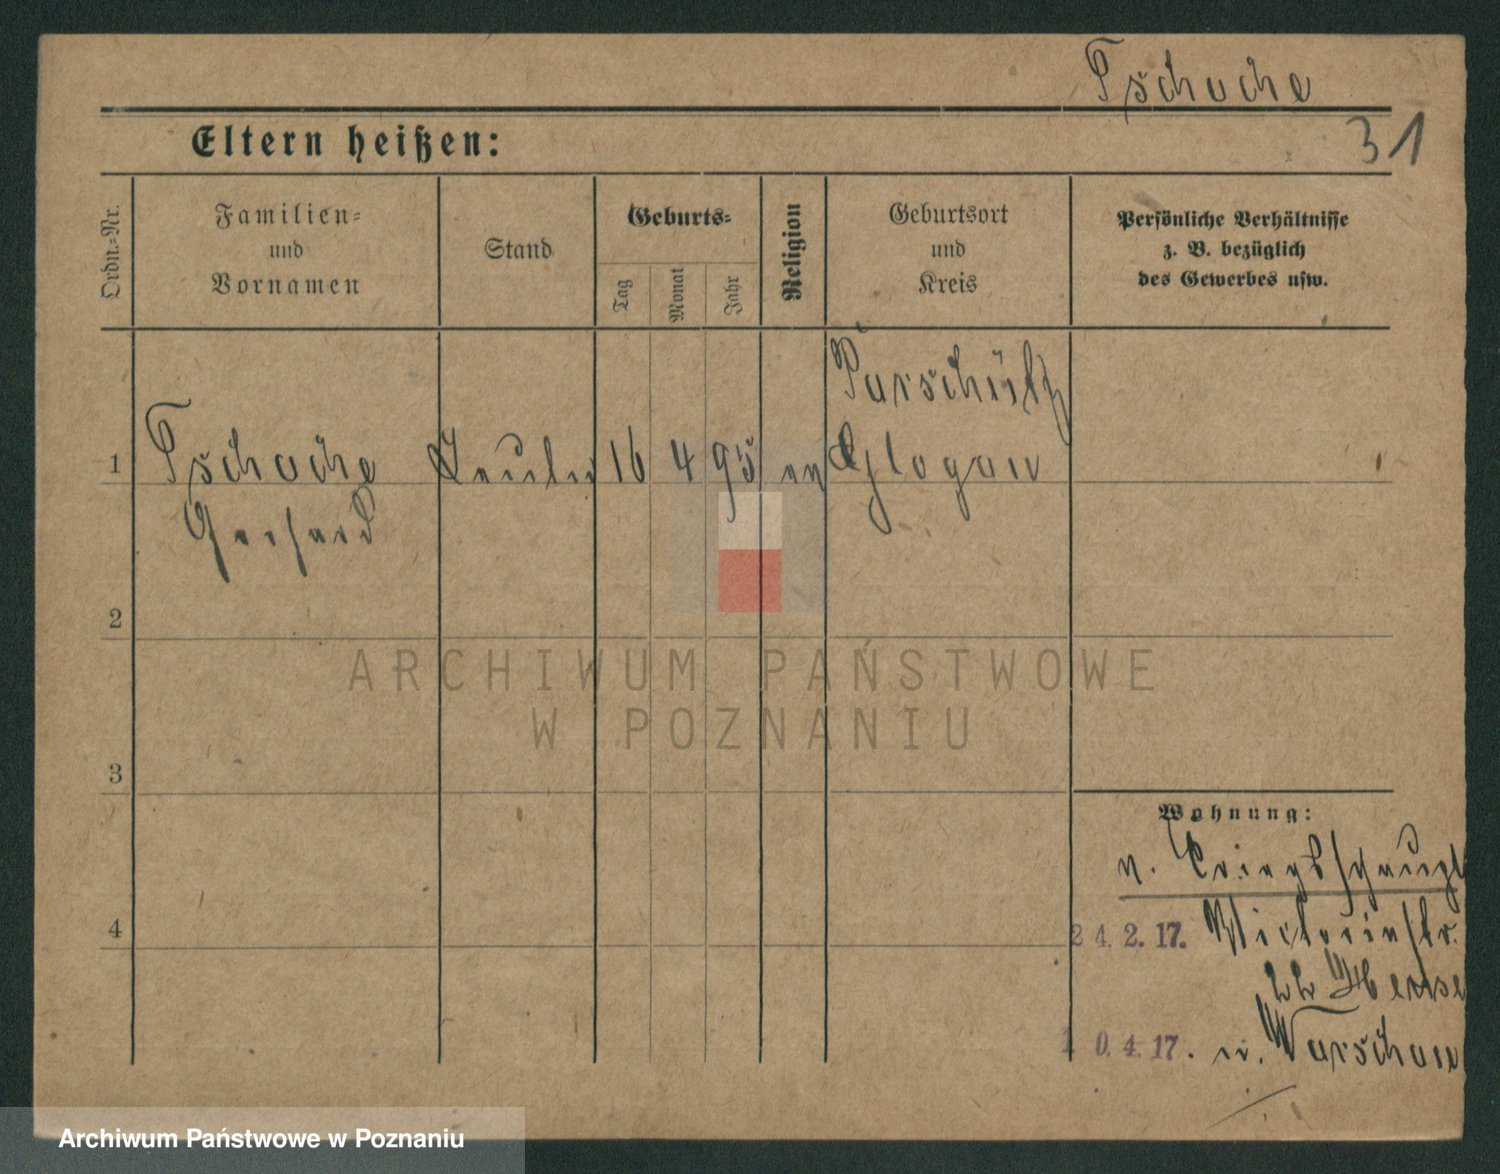 Tschache
Eltern heißen:
31
Ordn.=Nr.
Familien=
und
Vornamen
Stand
Geburts=
Tag
Monat
Jahr
Religion
Geburtsort
und
Kreis
Persönliche Verhältnisse
z. B. bezüglich
des Gewerbes usw.
1
Tschache
Gerhard
16
4
95
ev
Purschütz
Glogau
2
3
4
Wohnung:
v.
24.2.17. Victoriastr.
22
10.4.17. n. Warschau
ARCHIWUM PAŃSTWOWE
W POZNANIU
Archiwum Państwowe w Poznaniu